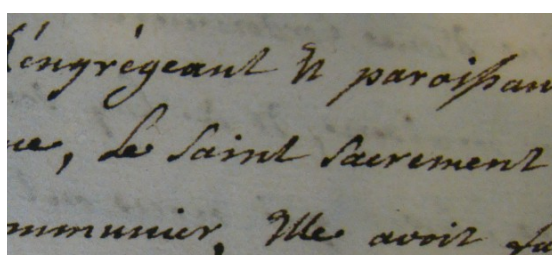 s'engrégeant et paroissan
ue, Le Saint Sacrement
mmunier, Elle avoit fa